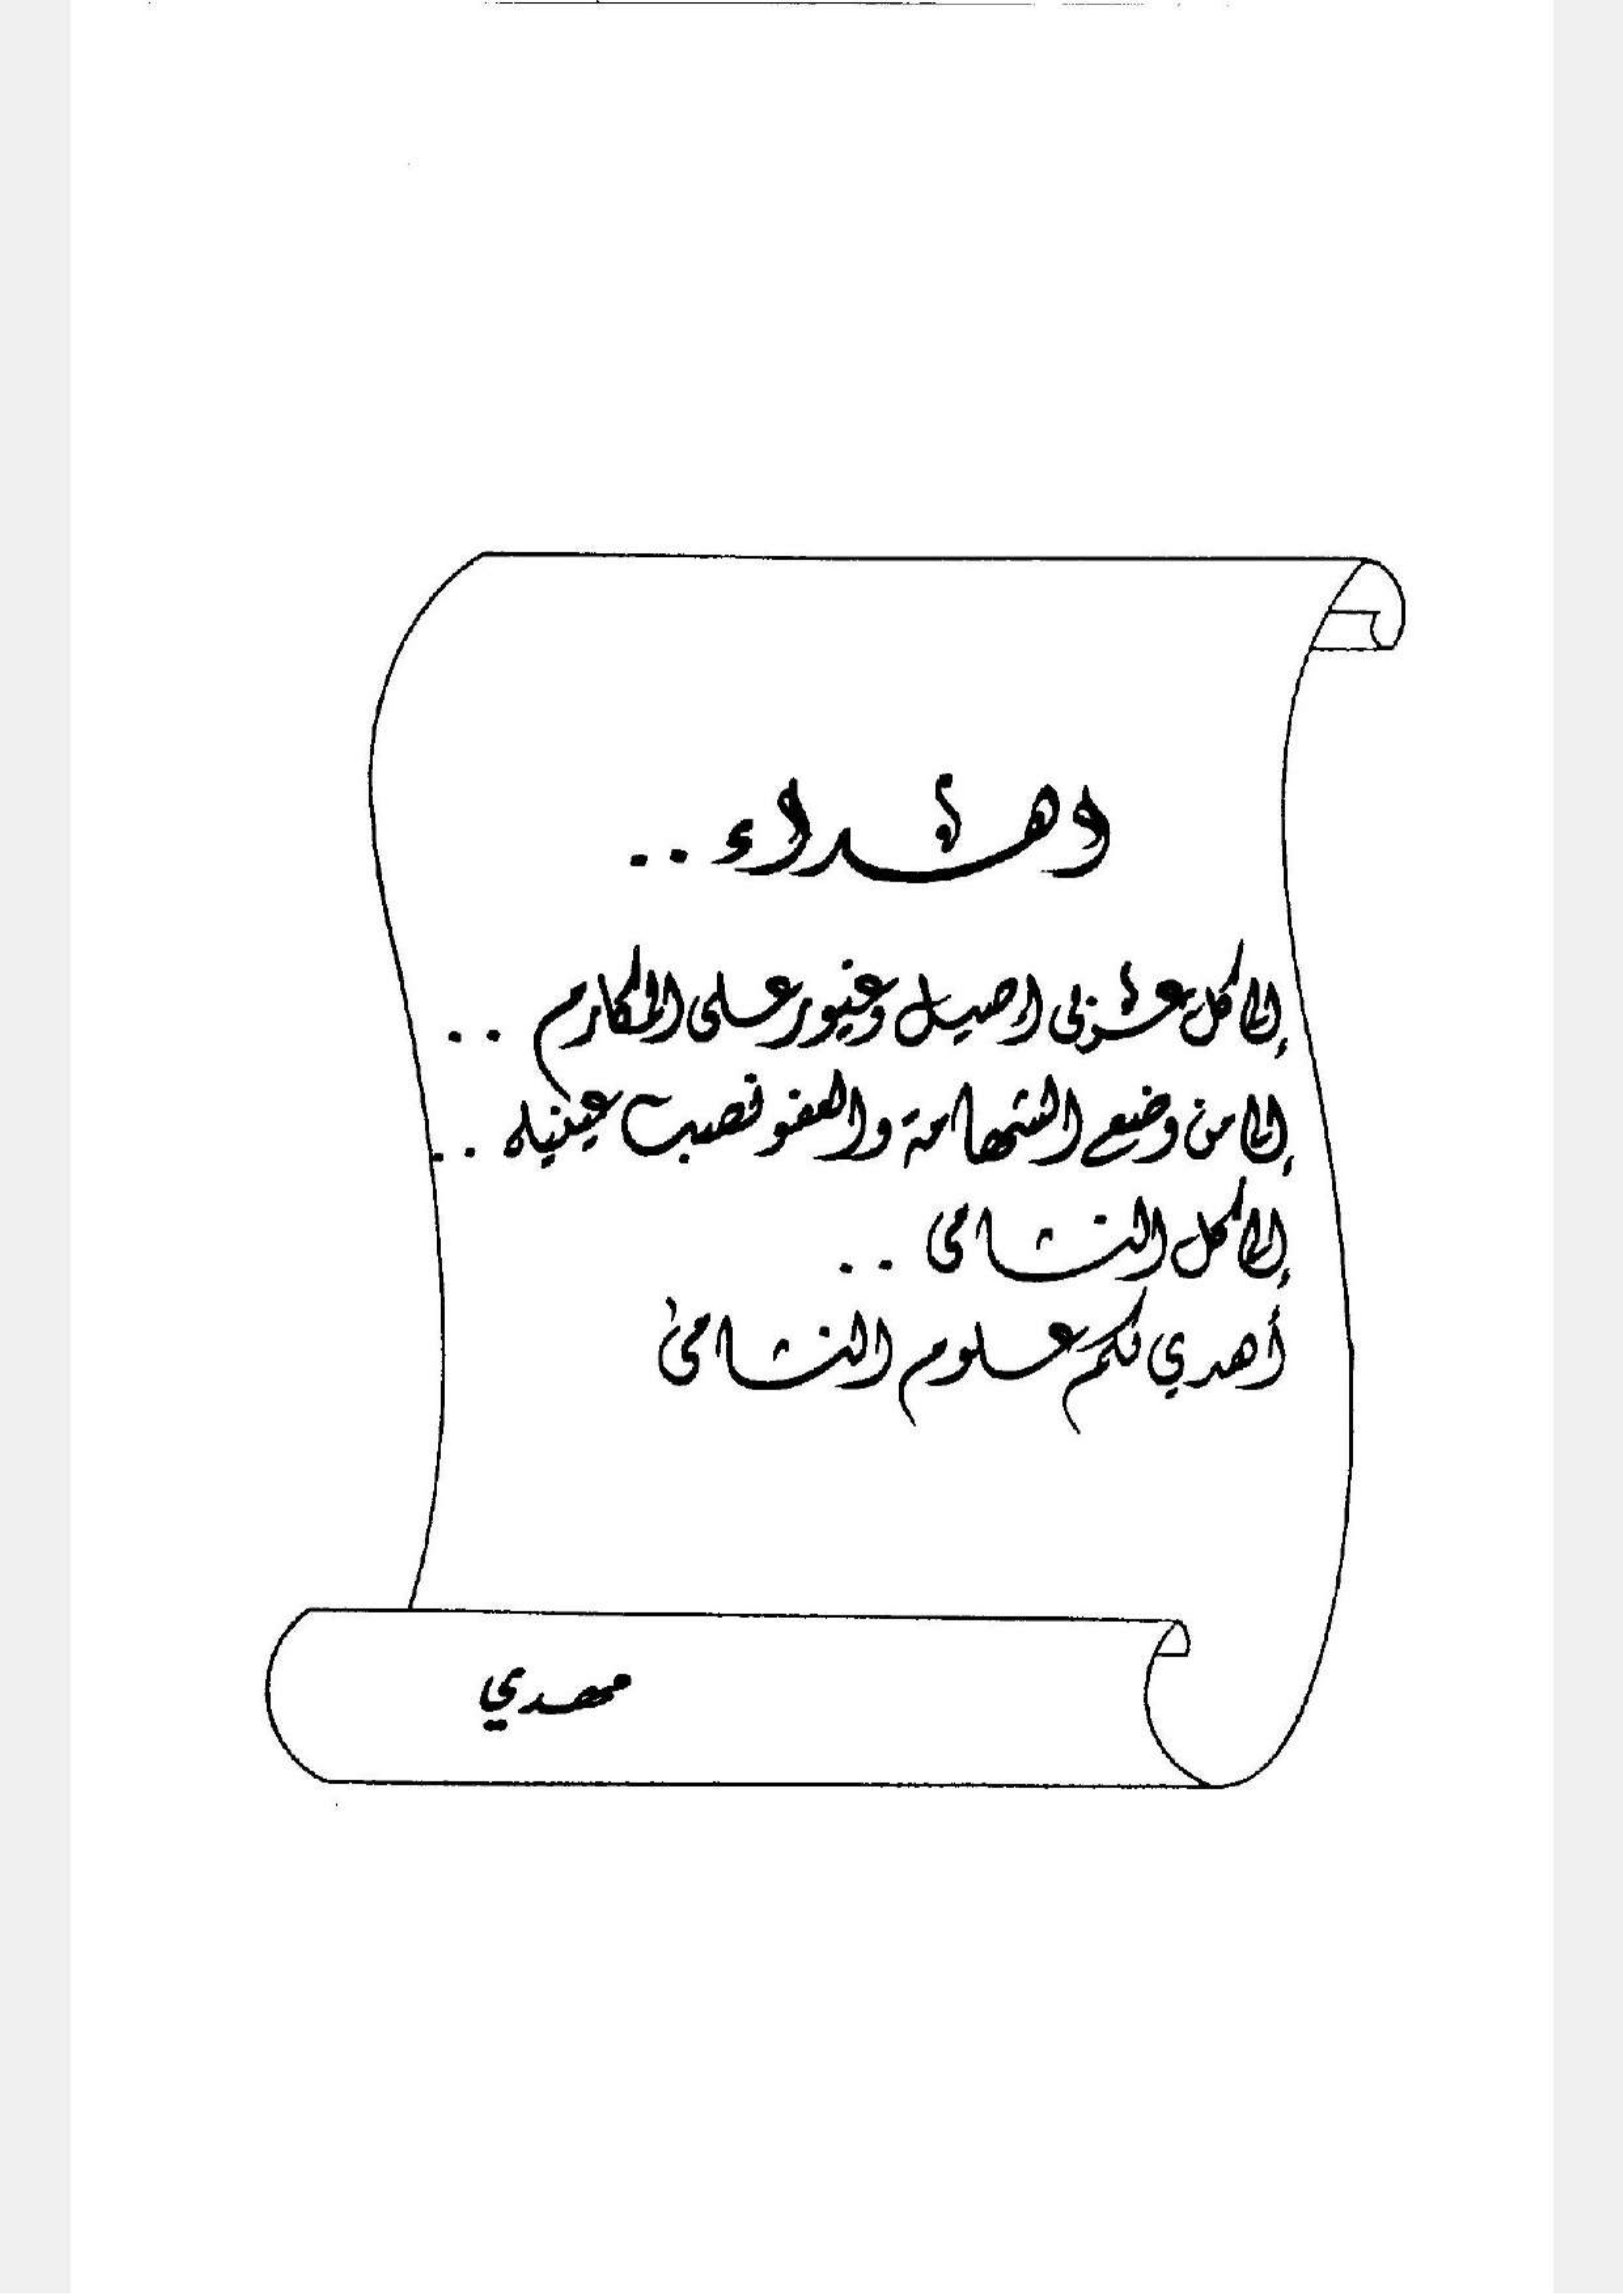 اهداء ..
إلى كل عربي اصيل وغيور على المكارم ..
إلى من وضع الشهامة والعفو نصب عينيه ..
إلى كل النشامى ..
أهدي لكم علوم النشامى
مهدي